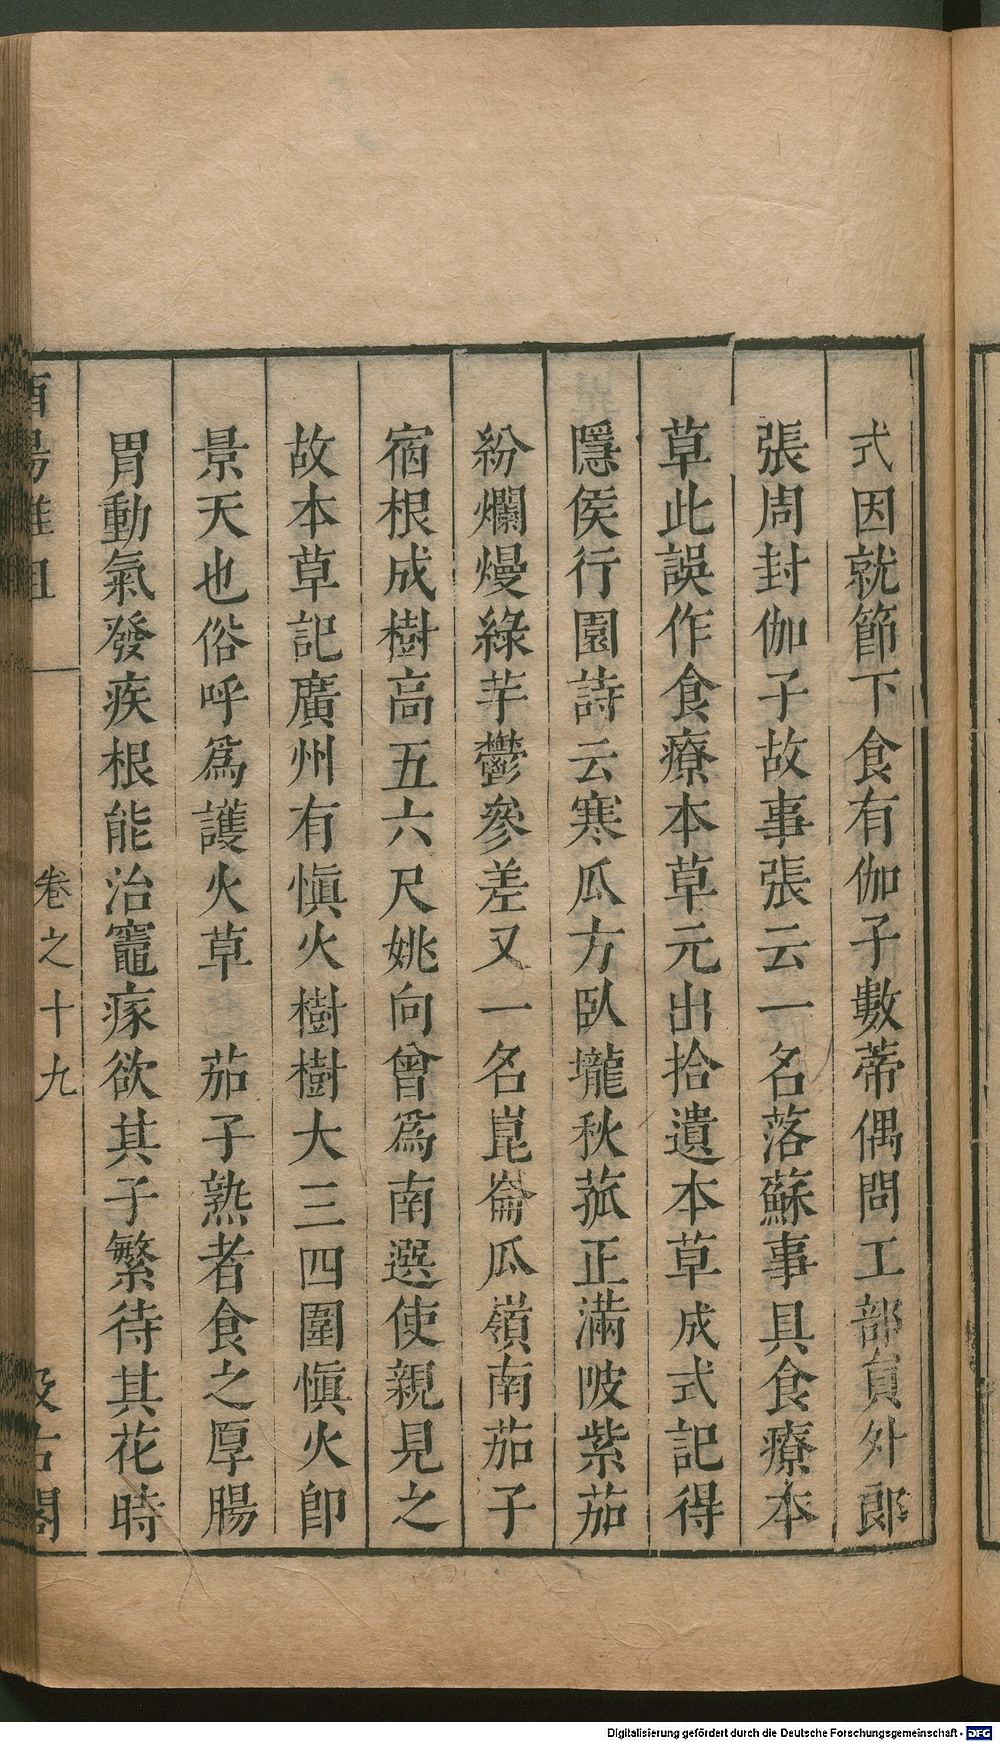 式因就節下食有伽子數蒂偶問工部員外郎
張周封伽子故事張云一名落蘇事具食療本
草此誤作食療本草元出拾遺本草成式記得
隱侯行園詩云寒瓜方臥壠秋菰正滿陂紫茄
紛爛熳綠芋鬱參差又一名崑崙瓜嶺南茄子
宿根成樹高五六尺姚向曾爲南選使親見之
故本草記廣州有愼火樹樹大三四圍愼火卽
景天也俗呼爲護火草　茄子熟者食之厚腸
胃動氣發疾根能治竈瘃欲其子繁待其花時
酉陽雜俎　卷之十九　汲古閣
Digitalisierung gefördert durch die Deutsche Forschungsgemeinschaft - DFG